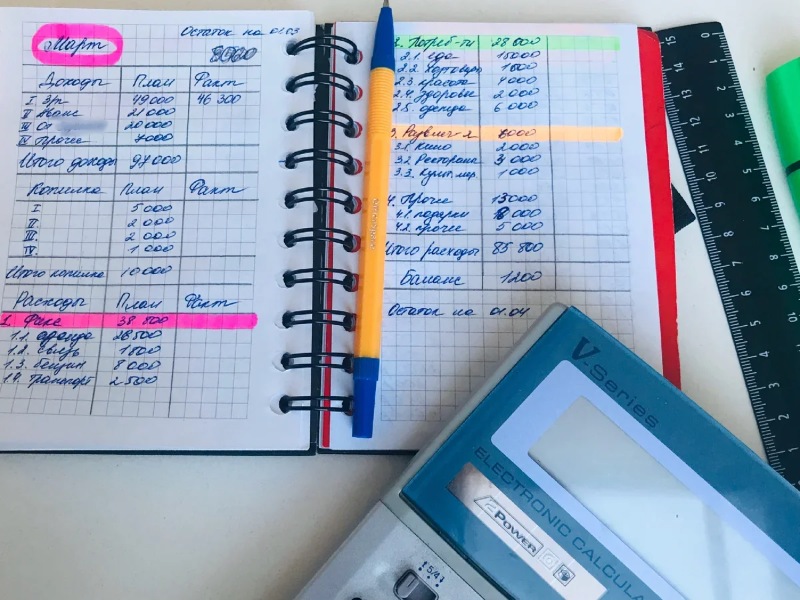 Март
Остаток на 01.03
Доходы План Факт
I З/п 49000 46 300
II Аванс 21 000
III От 20 000
IV Прочее 7000
Итого доходы 97 000
Копилка План Факт
I 5 000
II. 2 000
III. 2 000
IV. 1 000
Итого копилка 10 000
Расходы План Факт
1. Фикс
1.1. аренда 26 500
1.2. связь
1.3. бензин 8 000
1.4. транспорт 2 500
2. Потреб-ти 28 600
2.1. еда 15000
2.2. хозтовары
2.3. красота 4 000
2.4. здоровье 2 000
2.5. одежда 6 000
3. Развлеч-я 6000
3.1. Кино 2 000
3.2. Рестораны 3 000
3.3. Культ. мер. 1 000
4. Прочее 13000
4.1. подарки 8 000
4.2. прочее 5 000
Итого расходы 85 800
Баланс 1200
Остаток на 01.04
V-Series
ELECTRONIC CALCULA
POWER
5/4
15 14 13 12 11 10
5 4 3 2 1 0